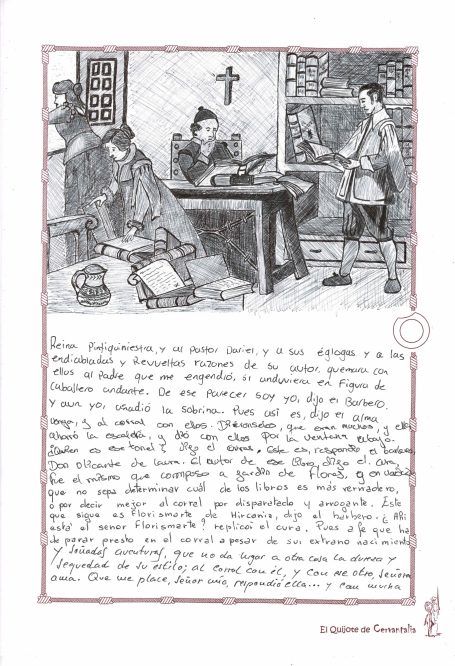 Reina Pintiquiniestra, y al Pastor Darinel, y a sus églogas y a las
endiabladas y Revueltas razones de su autor, quemara con
ellos al Padre que me engendró, si anduviera en Figura de
Caballero andante. De ese Parecer soy yo, dijo el Barbero.
Y aun yo, añadió la sobrina. Pues así es, dijo el alma
vengan, y al corral con ellos. Diéronselos, que eran muchos, y ella
ahorró la escalera, y dió con ellos por la ventana abajo.
¿Quién es ese tonel? dijo el cura. Este es, respondió el barbero,
Don Olicante de Laura. El autor de ese libro, dijo el cura,
fue el mismo que compuso a Jardín de Flores, y en verdad
que no sepa determinar cuál de los libros es más verdadero,
o por decir mejor al corral por disparatado y arrogante. Este
que sigue es Florismarte de Hircania, dijo el barbero. ¿Ahí
está el señor Florismarte? replicó el cura. Pues a fe que ha
de parar presto en el corral a pesar de su extraño nacimiento
y soñadas aventuras, que no da lugar a otra cosa la dureza y
sequedad de su estilo; al corral con él, y con ese otro, señora
ama. Que me place, señor mío, respondió ella... y con mucha
El Quijote de Cervantalia